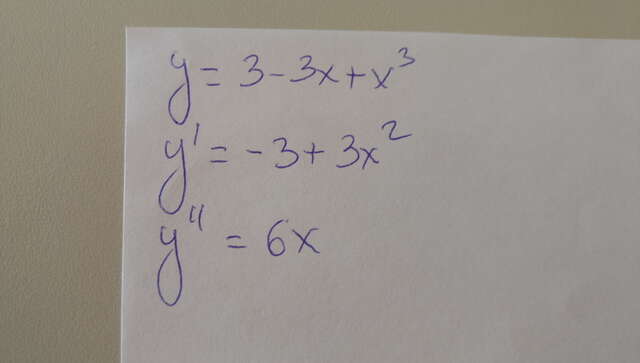 y = 3 - 3x + x³
y' = -3 + 3x²
y'' = 6x